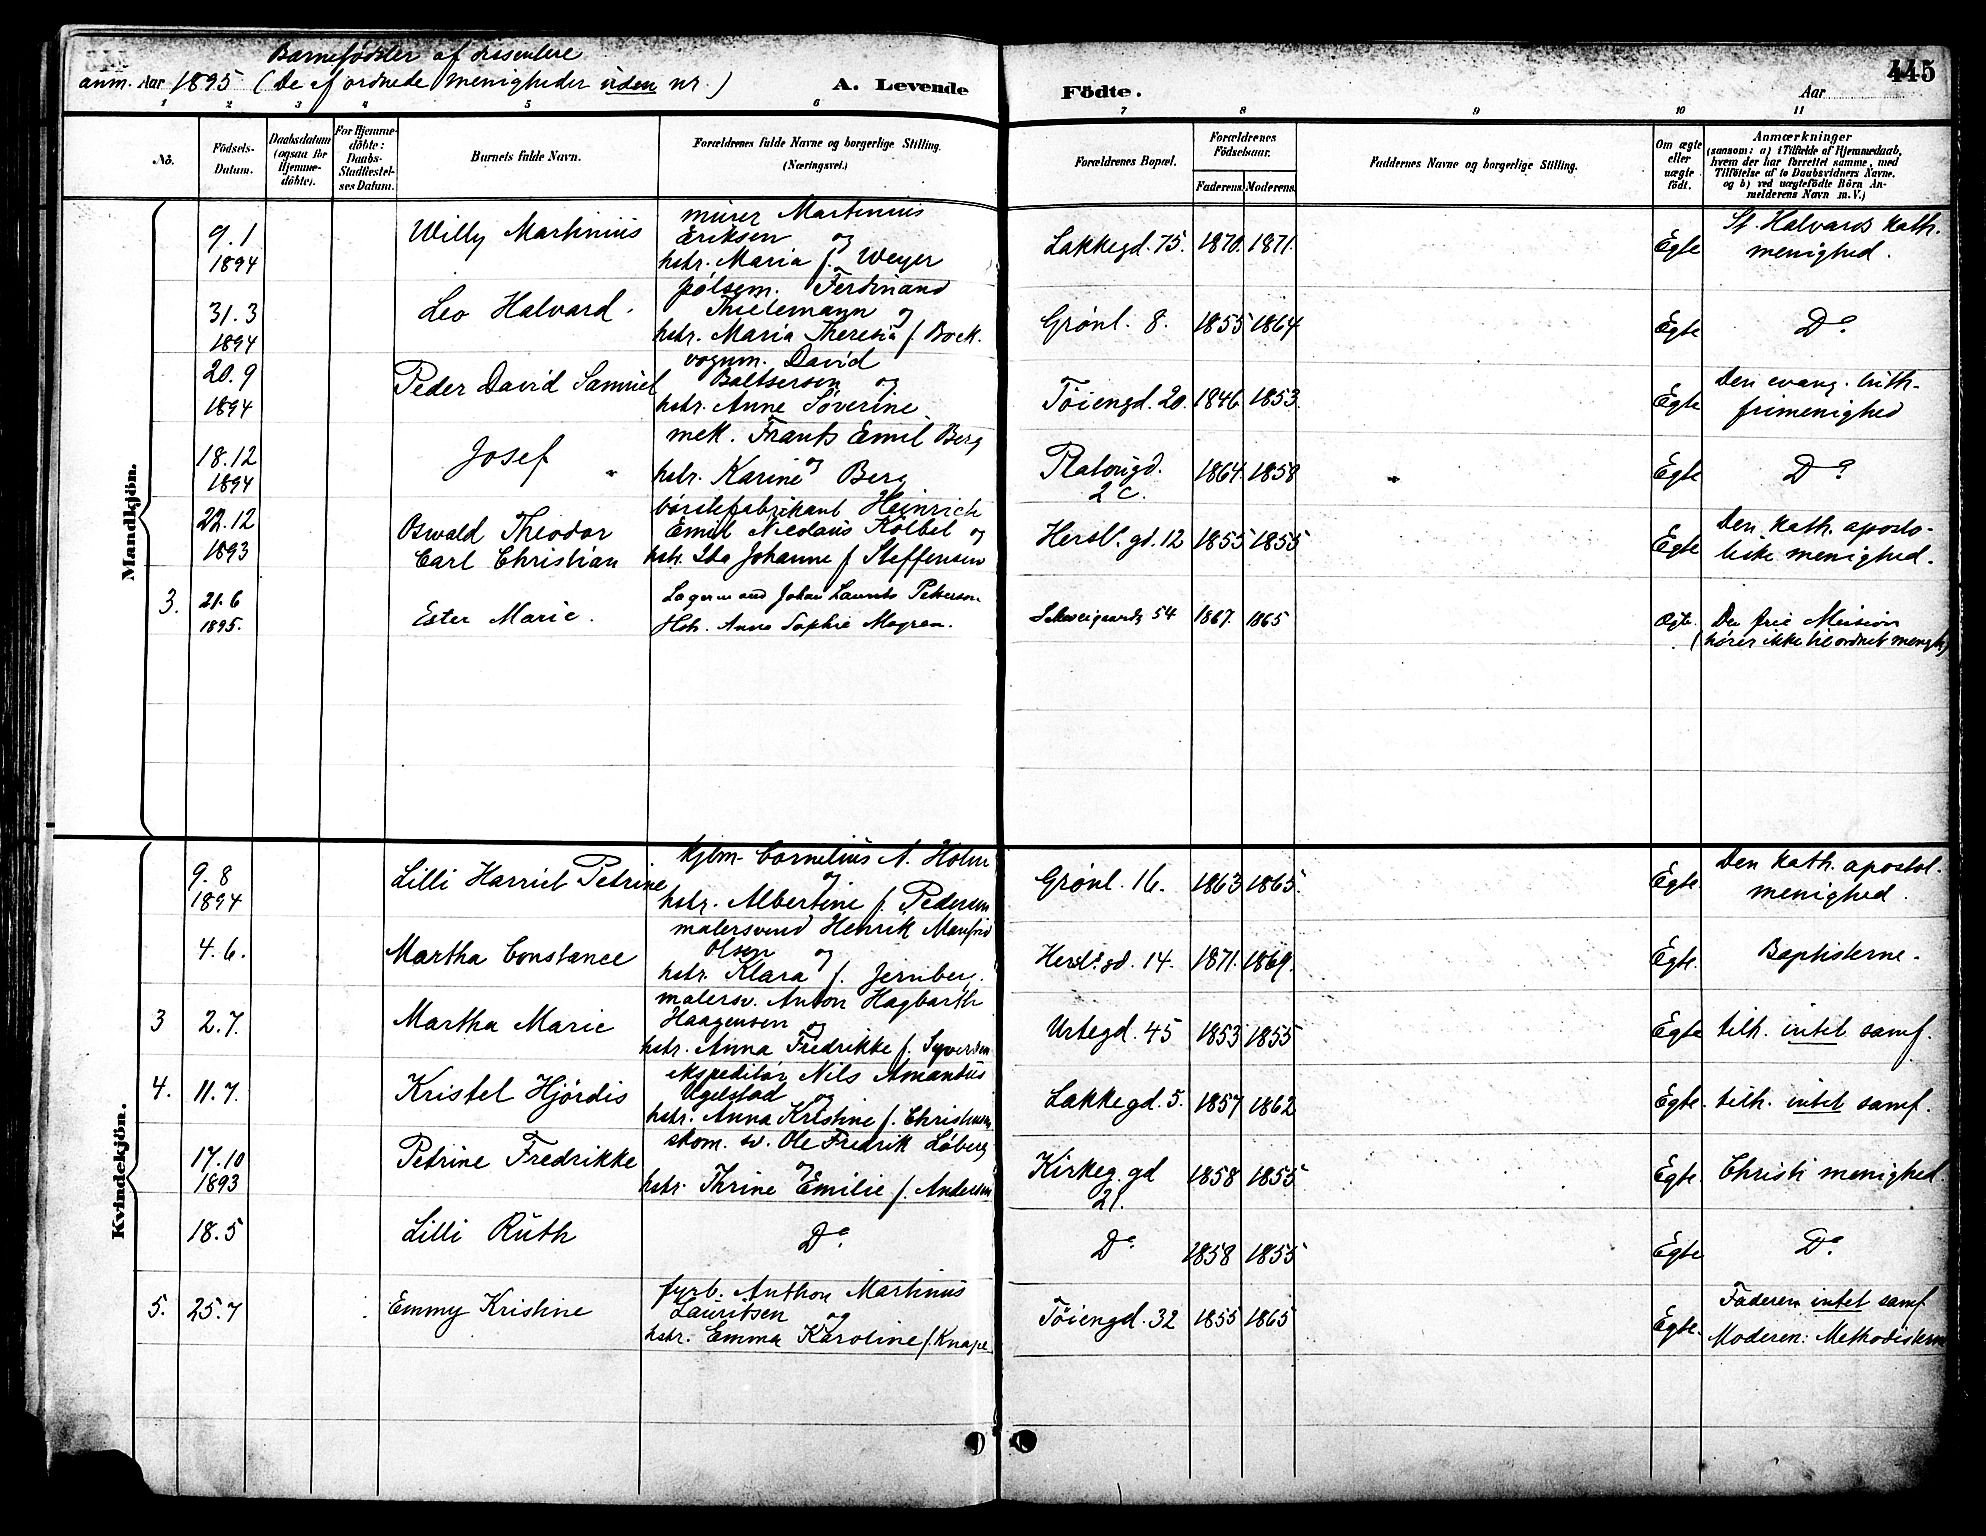 Barnefødsler af dissentere
anm. Aar 1895 (De af ordnede menigheder uden nr.)
A. Levende Födte.
445
Aar
1 2 3 4 5 6 7 8 9 10 11
No.
Födsels-Datum.
Daabsdatum (ogsaa for Hjemme-döbte).
For Hjemme-döbte: Daabs-Stadfæstel-ses Datum.
Barnets fulde Navn.
Forældrenes fulde Navne og borgerlige Stilling.
(Næringsvei.)
Forældrenes Bopæl.
Forældrenes Födselsaar.
Faderens. Moderens.
Faddernes Navne og borgerlige Stilling.
Om ægte eller uægte födt.
Anmærkninger
(sansom: a) i Tilfælde af Hjemmedaab, hvem der har forrettet samme, med Tilföielse af to Daabsvidners Navne, og b) ved uægtefödte Börn An-melderens Navn m. V.)
Mandkjön.
9.1
1894
Willy Martinius
murer Martinius
Eriksen og
hstr. Maria f. Weyer
Lakkegd. 75.
1870. 1871.
Egte
St. Halvards kath.
menighed.
31.3
1894
Leo Halvard.
pølsem. Ferdinand
Thielemann og
hstr. Maria Theresia f. Bock.
Grønl. 8.
1855 1864.
Egte
Do
20.9
1894
Peder David Samuel
vognm. David
Baltsersen og
hstr. Anne Søverine
Tøiengd. 20.
1846. 1853.
Egte
Den evang. luth-
frimenighed
18.12
1894
Josef
mek. Frants Emil Berg
og
hstr. Karine Berg
Platougd.
2 c.
1864. 1858
Egte
Do
22.12
1893
Oswald Theodor
Carl Christian
børstefabrikant Heinrich
Emil Nicolaus Kölbel og
hstr. Ida Johanne f Steffensen
Hersl. gd. 12
1855 1855
Egte
Den kath. aposto-
liske menighed.
3.
21.6
1895.
Ester Marie.
Lagermand Johan Laurits Petterson
Hstr. Anna Sophie Magrea.
Schweigaards 54
1867. 1865
Ægte.
Den frie Mission
(hører ikke til ordnet menigh)
Kvindekjön.
9.8
1894
Lilli Harriet Petrine
kjbm. Cornelius N. Holm
og
hstr. Albertine f. Pedersen
Grønl. 16.
1863 1865.
Egte.
Den kath. apostol.
menighed.
4.6.
Martha Constance
malersvend Henrik Manfrid
Olsen og
hstr. Klara f. Jernberg.
Hersl. gd. 14.
1871. 1869.
Egte.
Baptisterne.
3
2.7.
Martha Marie
malersv. Anton Hagbarth
Haagensen og
hstr. Anna Fredrikke f. Syversen
Urtegd. 45
1853 1855
Egte
tilh. intet samf.
4.
11.7.
Kristel Hjördis
ekspeditør Nils Amandus
Ugelstad og
hstr. Anna Kristine f. Christensen
Lakkegd. 5.
1857 1862
Egte.
tilh. intet samf.
17.10
1893
Petrine Fredrikke
skom. sv. Ole Fredrik Løberg
og
hstr. Thrine Emilie f. Andersen
Kirkeg. gd
21.
1858 1855
Egte.
Christi menighed.
18.5
Lilli Ruth
Do.
Do.
1858 1855
Egte
Do.
5.
25.7
Emmy Kristine
fyrb. Anthon Martinius
Lauritsen og
hstr. Emma Karoline f. Knape
Tøiengd. 32
1855 1865
Egte.
Faderen intet samf
Moderen: Methodisterne